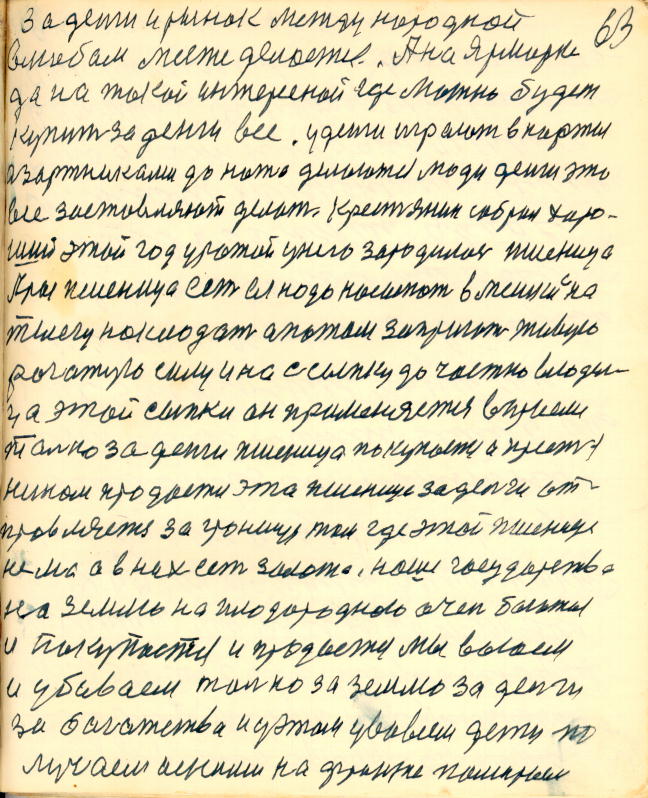 63
За денги и рынок между народной
место делается. А на Ярморке
да на такой интересной где можно будет
купит за денги все. и дети играют в карты
азартниками до ножа делаются люди денги это
все заставляют делат. Крестянин собрал харо-
ший этой год урожай у него зародилося пшеница
Ярая пшеница ест ея надо насыпат в мешки на
телегу накладат а потом запрягат живую
рогатую силу и на ссыпку до частно владел-
ца этой сыпки он применяется
толко за денги пшеница покупается а крестя
нином продается эта пшеница за денги от-
правляется за границу там где этой пшеницы
нема а в них ест золото. наше государство
на землю на плодородною очен богатая
и покупается и продается мы воюем
и убиваем толко за землю за денги
за богатства и у этом убовлем дети по
лучаем на фронте помираем